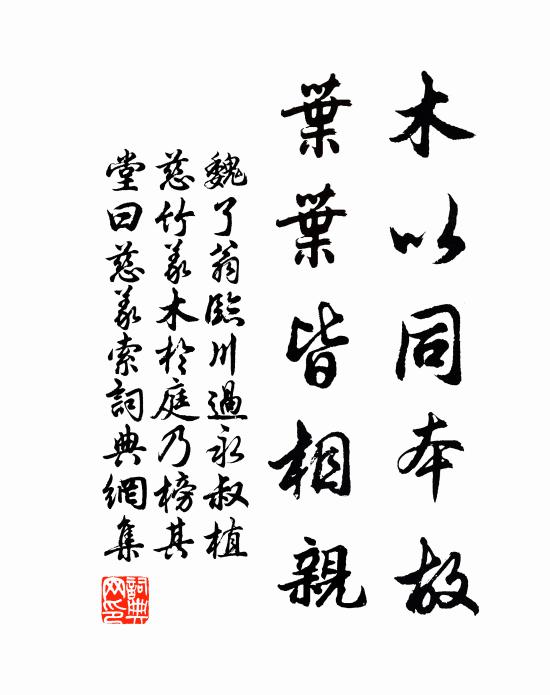 木以同本故
葉葉皆相親
魏了翁臨川過永叔植
慈竹義木於庭乃榜其
堂曰慈義索詞典網集
詞典網印